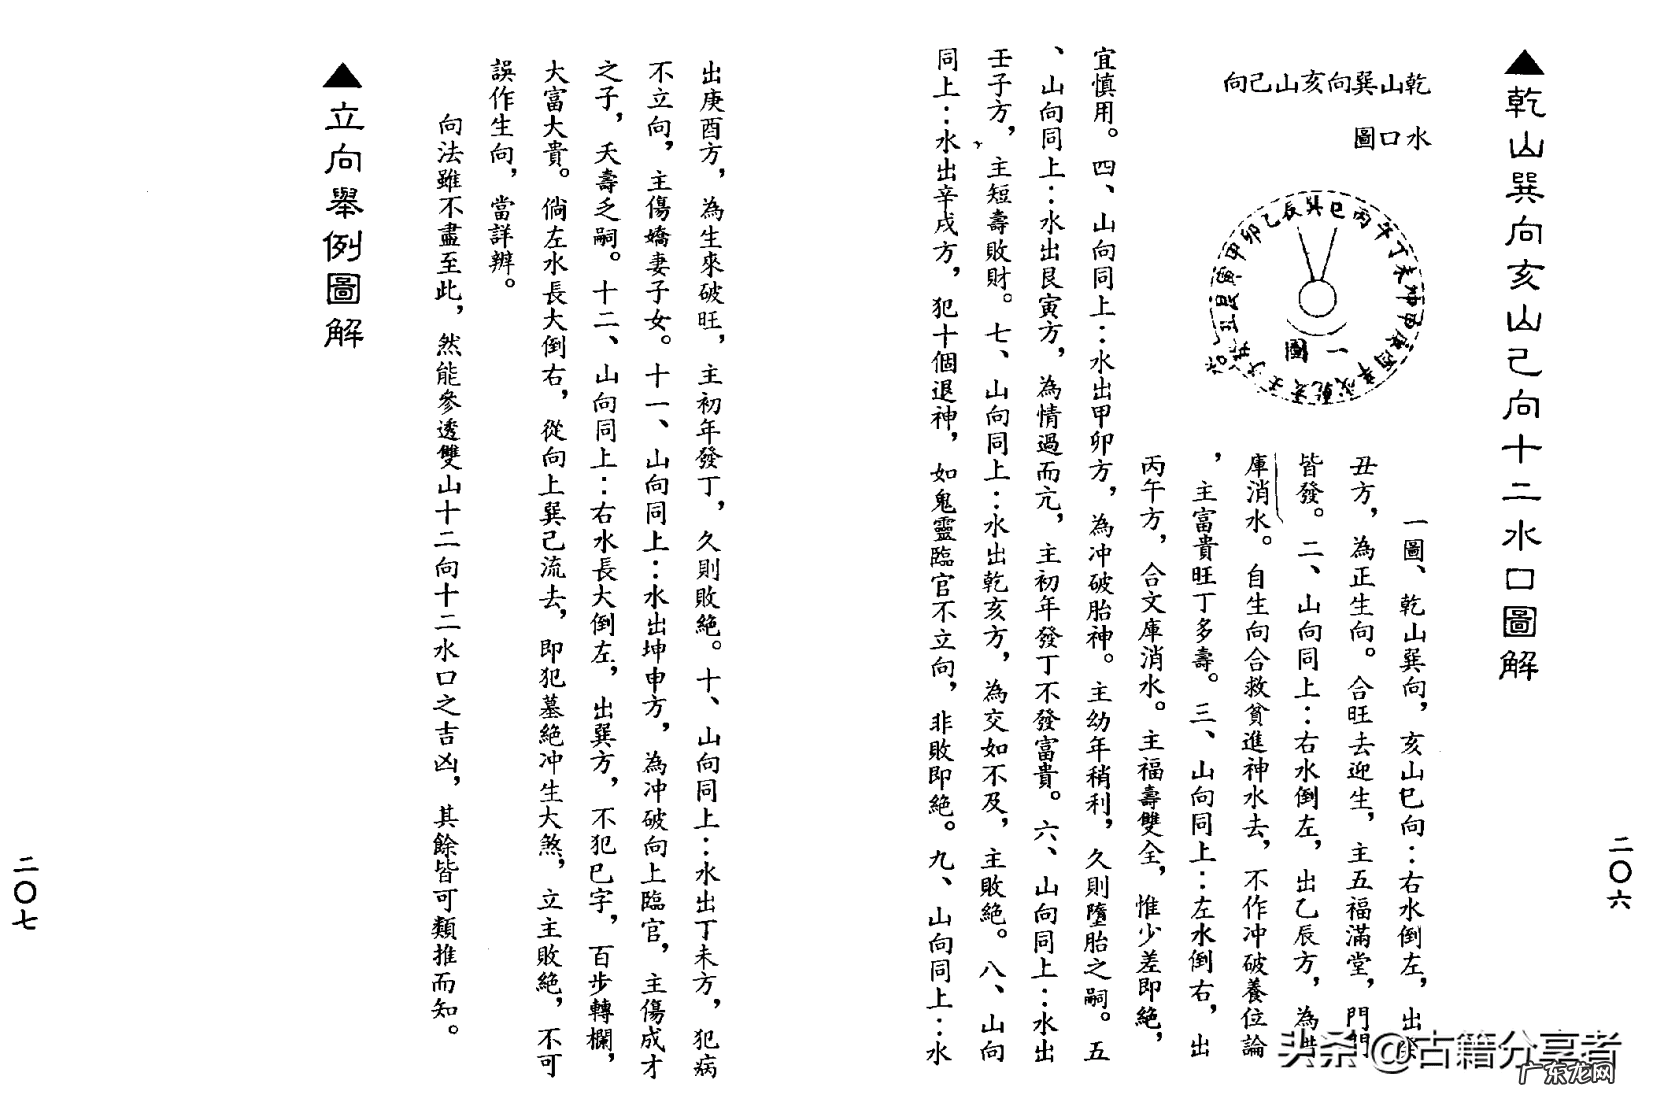 ▲乾山巽向亥山己向十二水口圖解
乾山巽向亥山己向
水口圖
巳丙午丁未坤申庚酉辛戌乾亥壬子癸丑艮寅甲卯乙辰巽
一圖
一圖、乾山巽向，亥山巳向：右水倒左，出癸
丑方，為正生向。合旺去迎生，主五福滿堂，門門
皆發。二、山向同上：右水倒左，出乙辰方，為借
庫消水。自生向合救貧進神水去，不作冲破養位論
，主富貴旺丁多壽。三、山向同上：左水倒右，出
丙午方，合文庫消水。主福壽雙全，惟少差即絕，
宜慎用。四、山向同上：水出甲卯方，為冲破胎神。主幼年稍利，久則墮胎之嗣。五
、山向同上：水出艮寅方，為情過而亢，主初年發丁不發富貴。六、山向同上：水出
壬子方，主短壽敗財。七、山向同上：水出乾亥方，為交如不及，主敗絕。八、山向
同上：水出辛戌方，犯十個退神，如鬼靈臨官不立向，非敗即絕。九、山向同上：水
二〇六
出庚酉方，為生來破旺，主初年發丁，久則敗絕。十、山向同上：水出丁未方，犯病
不立向，主傷嬌妻子女。十一、山向同上：水出坤申方，為冲破向上臨官，主傷成才
之子，夭壽乏嗣。十二、山向同上：右水長大倒左，出巽方，不犯巳字，百步轉欄，
大富大貴。倘左水長大倒右，從向上巽己流去，即犯墓絕冲生大煞，立主敗絕，不可
誤作生向，當詳辨。
向法雖不盡至此，然能參透雙山十二向十二水口之吉凶，其餘皆可類推而知。
▲立向舉例圖解
二〇七
头条@古籍分享者
广东龙网